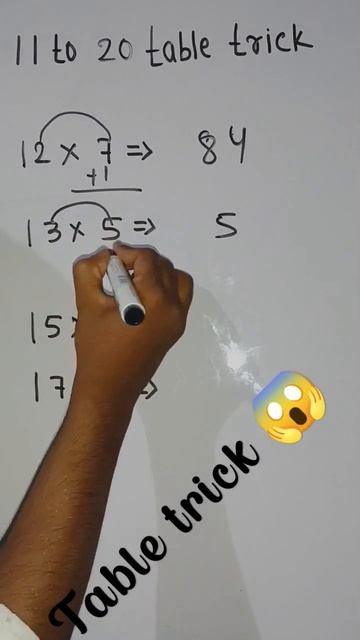 11 to 20 table trick
12 × 7 ⇒ 84
+1
13 × 5 ⇒ 5
15
17
Table trick 😱